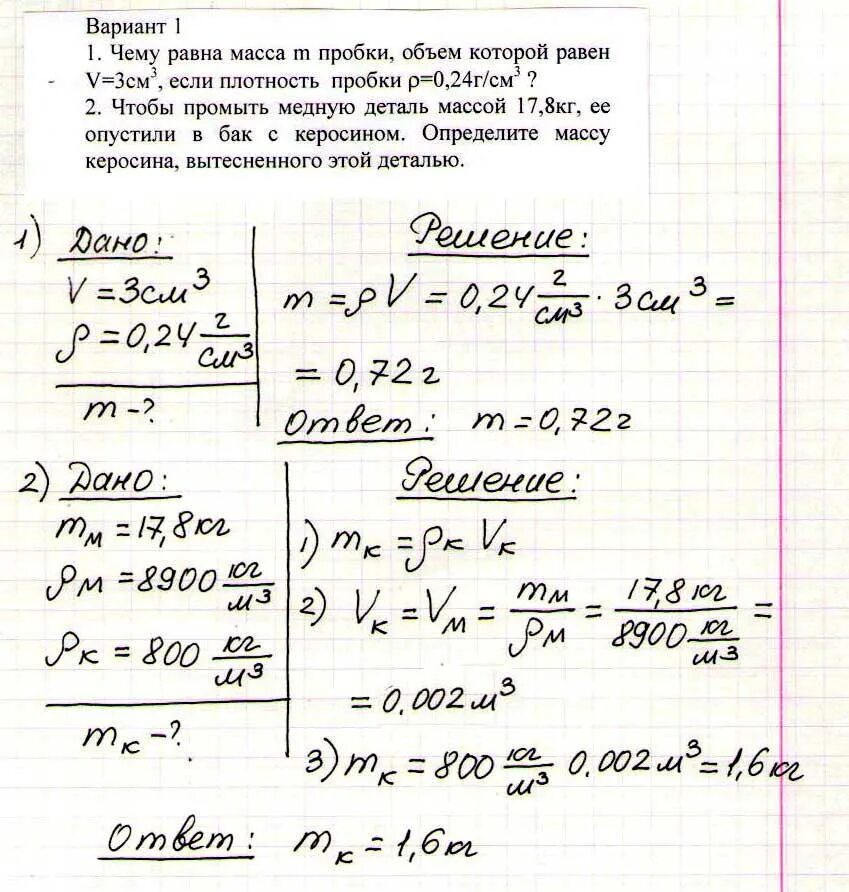 Вариант 1
1. Чему равна масса m пробки, объем которой равен
V=3см³, если плотность пробки ρ=0,24г/см³ ?
2. Чтобы промыть медную деталь массой 17,8кг, ее
опустили в бак с керосином. Определите массу
керосина, вытесненного этой деталью.
1) Дано:
V = 3см³
ρ = 0,24 г/см³
m - ?
Решение:
m = ρV = 0,24 г/см³ · 3см³ =
= 0,72г
Ответ: m = 0,72г
2) Дано:
mм = 17,8кг
ρм = 8900 кг/м³
ρк = 800 кг/м³
mк - ?
Решение:
1) mк = ρк Vк
2) Vк = Vм = mм/ρм = 17,8кг/8900 кг/м³ =
= 0.002м³
3) mк = 800 кг/м³ 0.002м³ = 1,6кг
Ответ: mк = 1,6кг